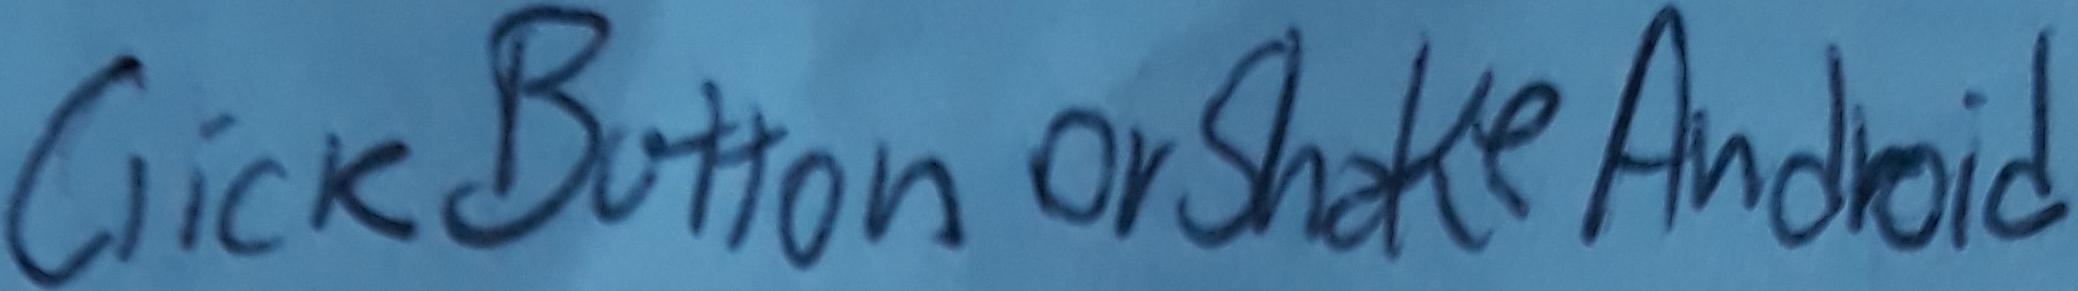 Click Button or Shake Android